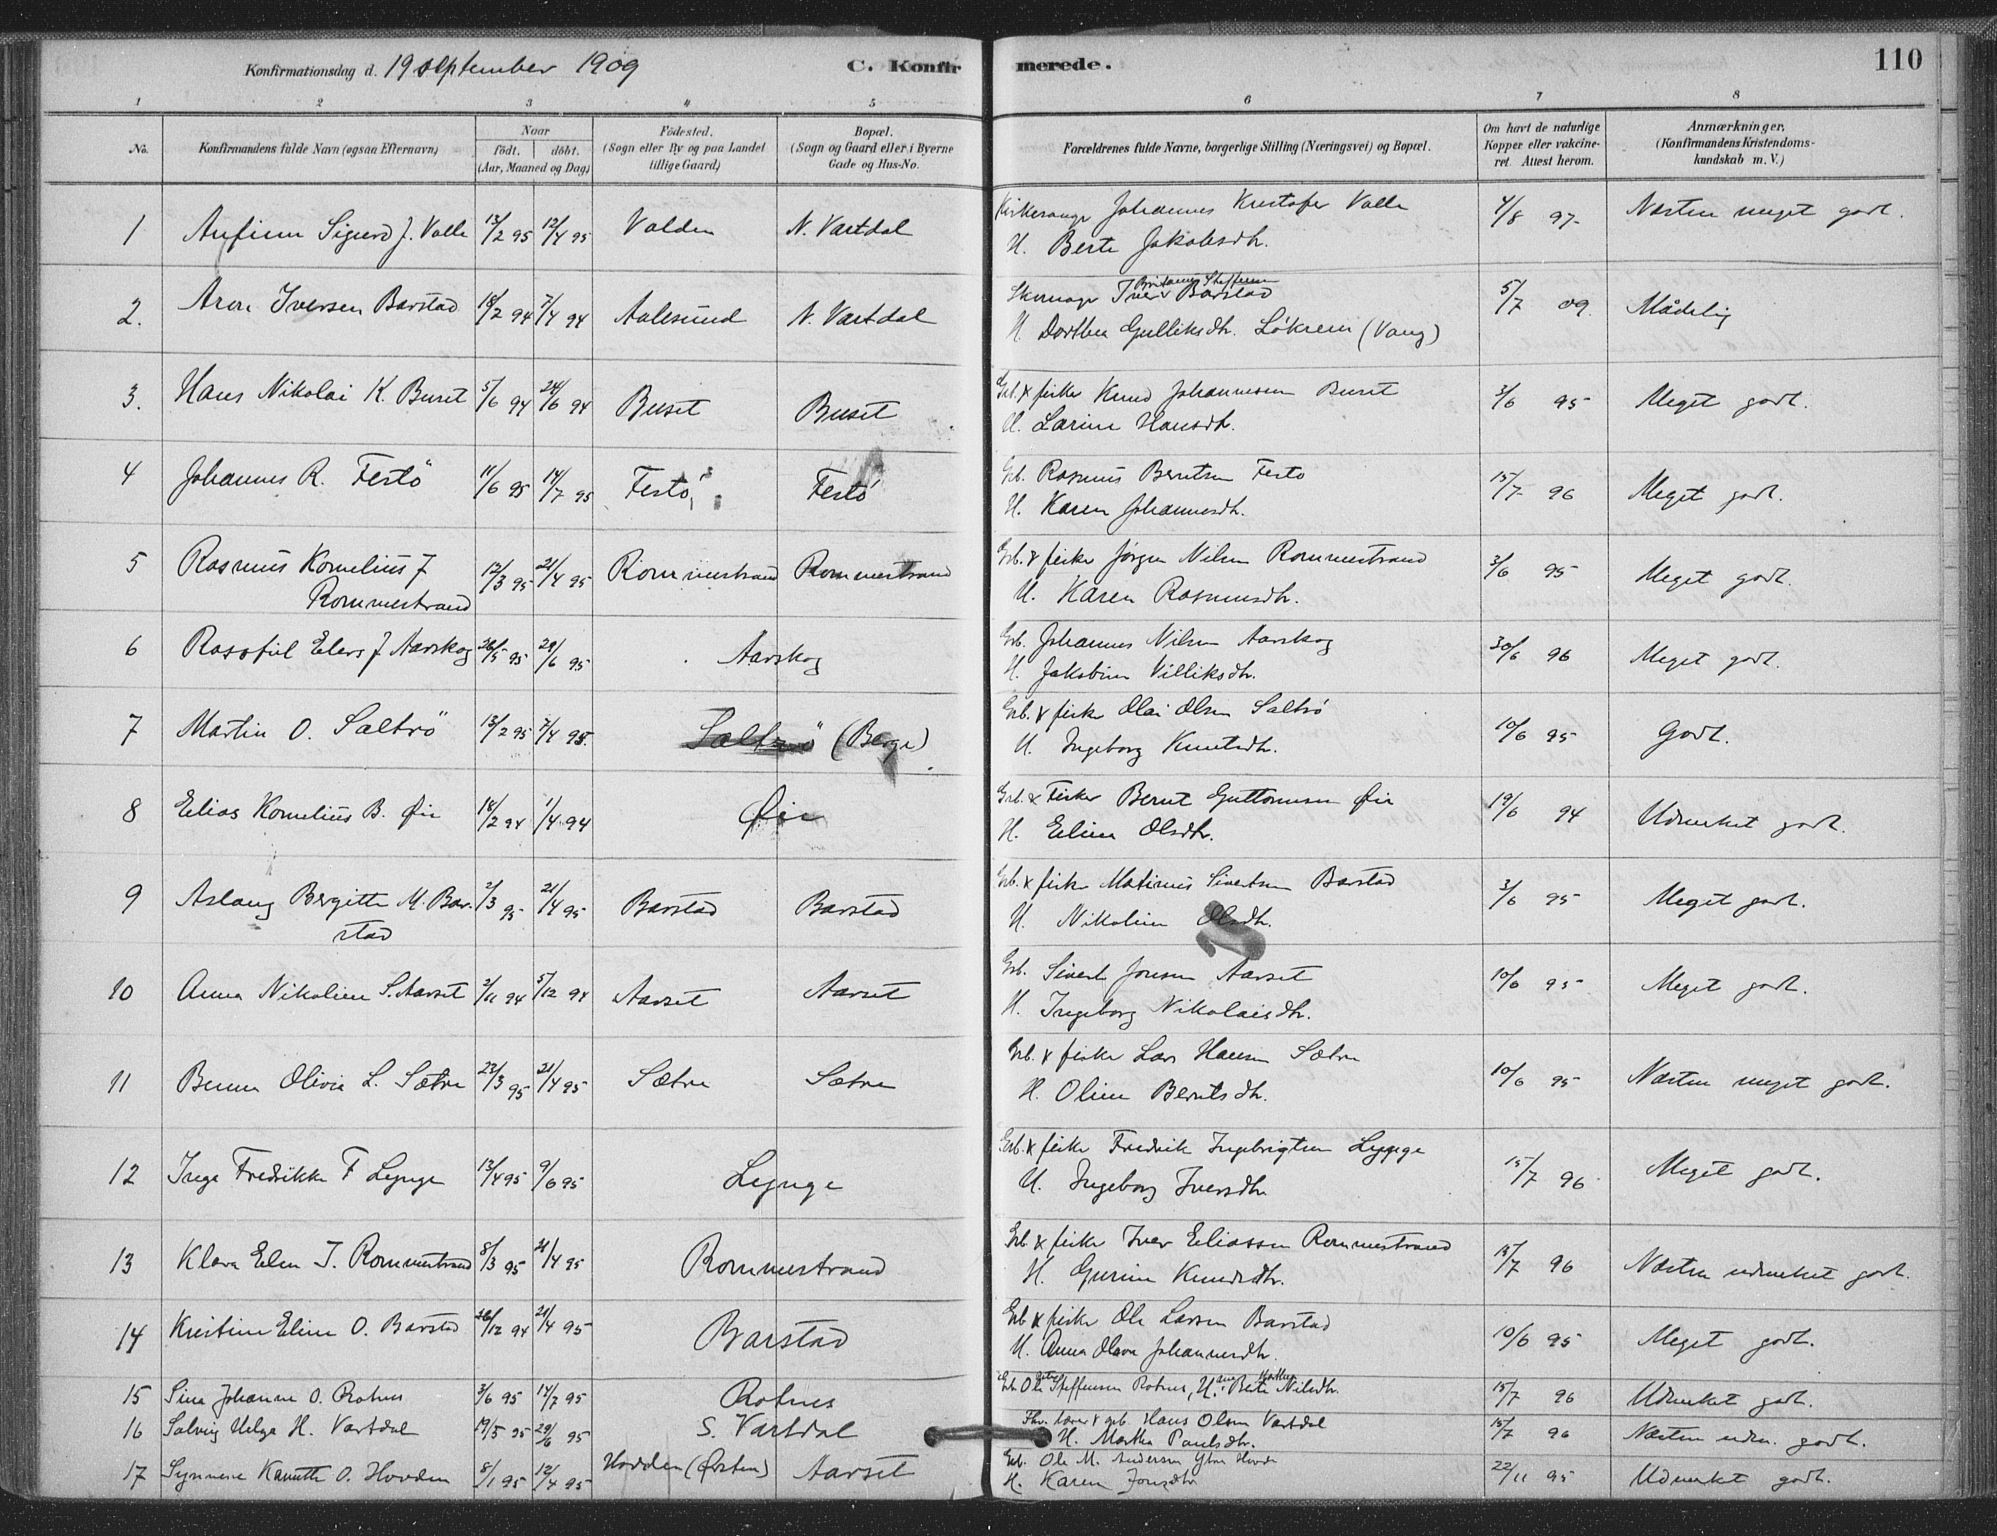 Konfirmationsdag d. 19 september 1909
C. Konfirmerede.
110
1 2 3 4 5 6 7 8
No.
Konfirmandens fulde Navn (ogsaa Efternavn)
Naar
født. døbt.
(Aar, Maaned og Dag)
Fødested.
(Sogn eller By og paa Landet
tillige Gaard)
Bopæl.
(Sogn og Gaard eller i Byerne
Gade og Hus-No.
Forældrenes fulde Navne, borgerlige Stilling (Næringsvei) og Bopæl.
Om havt de naturlige
Kopper eller vakcine-
ret. Attest herom.
Anmærkninger.
(Konfirmandens Kristendoms-
kundskab m. V.)
1 Anfinn Sigurd J. Valle 13/2 95 12/4 95 Valden N. Vartdal Kirkesanger Johannes Kristofer Valle 4/8 97 Næsten meget godt.
H. Berte Jakobsdtr.
2. Aron Iversen Barstad 18/2 94 7/4 94 Aalesund N. Vartdal Skomager Iver Barstad 5/7 09. Mådelig
Steffensen
H. Dorthea Gulliksdtr. Løkrem (Vang)
3. Hans Nikolai K. Buset 5/6 94 24/6 94 Buset Buset Grb. & fisker Knud Johannesen Buset 3/6 95 Meget godt.
H. Larine Hansdtr.
4 Johannes R. Festö 11/6 95 14/7 95 Festö Festö Grb. Rasmus Berntsen Festo 15/7 96 Meget godt.
H. Karen Johannesdtr.
5 Rasmus Kornelius J 12/3 95 21/4 95 Rommestrand Rommestrand Grb. & fisker Jørgen Nilsen Rommestrand 3/6 95 Meget godt.
Rommestrand
H. Karen Rasmusdtr.
6 Elers J Aarskog 26/5 95 29/6 95 Aarskog Grb. Johannes Nilsen Aarskog 30/6 96 Meget godt.
H. Jakobine Villiksdtr.
7 Martin O. Saltrö 13/2 95 7/4 95. Saltrö (Berge) Grb. & fisker Olai Olsen Saltrö 10/6 95 Godt.
H. Ingeborg Knutsdtr.
8 Elias Kornelius B. Øie 18/2 94 1/4 94 Øie Grb. & Fisker Bernt Guttormsen Øie 19/6 94 Udmerket godt.
H. Eline Olsdtr.
9 Aslaug Bergitte M. Bar- 2/3 95 21/4 95 Barstad Barstad Grb. & fisker Matinus Sivertsen Barstad 3/6 95 Meget godt.
stad
H. Nikoline Olsdtr.
10 Anna Nikoline S. Aarset 2/11 94 5/12 94 Aarset Aarset Grb. Sivert Jonsen Aarset 10/6 95 Meget godt.
H. Ingeborg Nikolaisdtr.
11 Olivia L. Sætre 22/3 95 21/4 95 Sætre Sætre Grb. & fisker Lars Hansen Sætre 10/6 95 Næsten meget godt.
H. Oline Berntsdtr.
12 Inga Fredrikke F Lynge 13/4 95 9/6 95 Lynge Grb. & fisker Fredrik Ingebrigtsen Lynge 15/7 96 Meget godt.
H. Ingeborg Iversdtr
13 Klara Elen I. Rommestrand 8/3 95 21/4 95 Rommestrand Grb & fisker Iver Eliassen Rommestrand 15/7 96 Næsten udmerket godt.
H. Gurine Knudsdtr.
14 Kristine Eline O. Barstad 26/12 94 21/4 95 Barstad Grb & fisker Ole Larsen Barstad 10/6 95 Meget godt.
H. Anna Olava Johannesdtr.
15 Sina Johanne O. Rotnes 3/6 95 14/7 95 Rotnes Grb. Ole Steffensen Rotnes, H. Berte Nilsdtr. 15/7 96 Udmerket godt.
16 Solveig Helga H. Vartdal 19/5 95 29/6 95 S. Vartdal Hans Olsen Vartdal 15/7 96 Næsten udm. godt.
H. Martha Paulsdtr.
17 Synneve Kanutte O. Hovden 8/1 95 12/4 95 Hovden (Ørsten) Aarset Grb. Ole M. Andersen Ytre Hovde 22/11 95 Udmerket godt.
H. Karen Jonsdtr